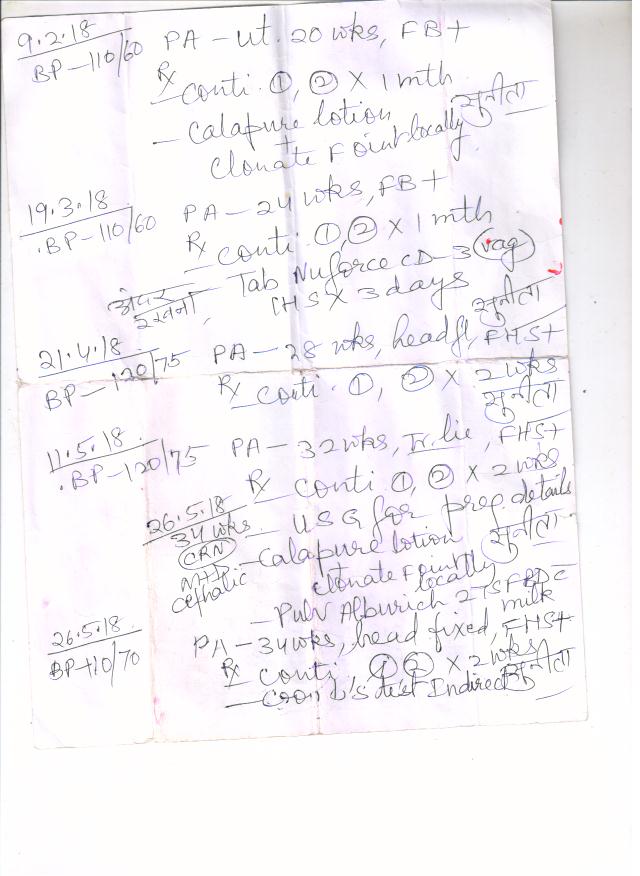 9.2.18
BP-110/60
PA - ut. 20 wks, FB+
Rx
- conti. ①, ② × 1 mth
- Calapure lotion
सुनीता
+
Clonate F oint locally
19.3.18
BP-110/60
PA - 24 wks, FB+
Rx
- conti. ①, ② × 1 mth
- Tab Nuforce CD-3 vag
1HS × 3 days
सुनीता
21.4.18
BP-120/75
PA - 28 wks, head fl, FHS+
Rx conti. ①, ② × 2 wks
सुनीता
11.5.18
BP-120/75
PA - 32 wks, Tr. lie, FHS+
Rx conti ①, ② × 2 wks
- USG for preg. details
26.5.18
34 wks
सुनीता
- Calapure lotion
+
Cefhalic
Clonate F oint locally
- Pulv Alburich 2TSF BD c milk
26.5.18
BP-110/70
PA - 34 wks, head fixed, FHS+
Rx conti ① ② × 2 wks
सुनीता
- Coomb's test Indirect